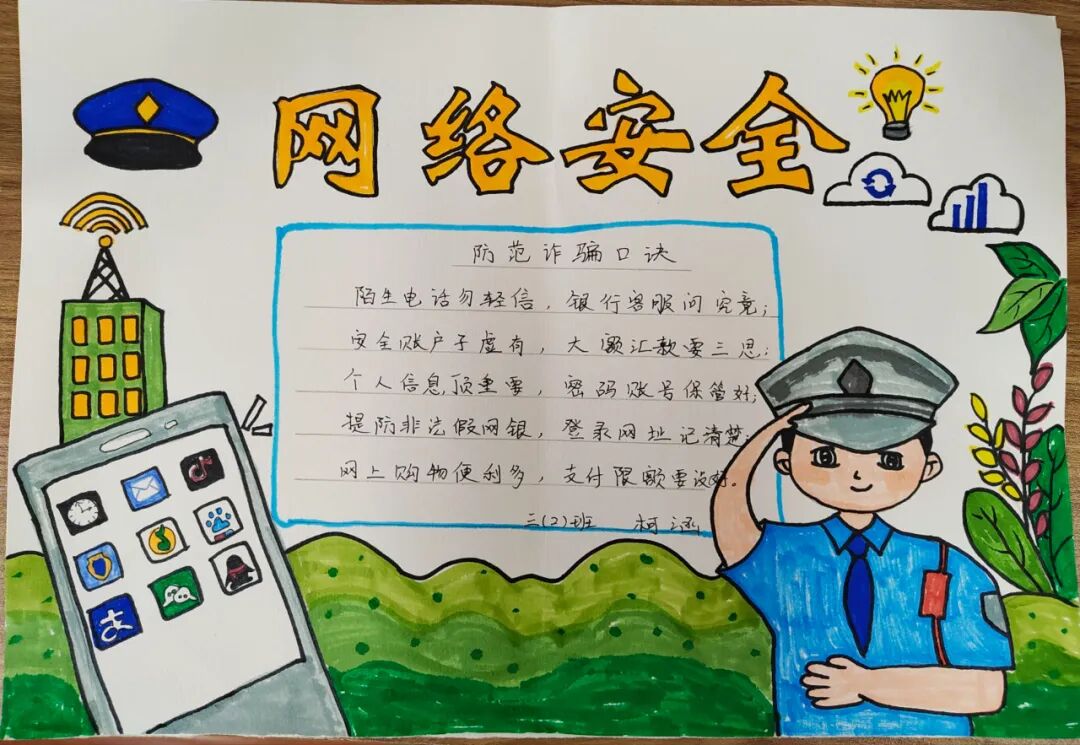 网络安全
防范诈骗口诀
陌生电话勿轻信，银行客服问究竟；
安全账户子虚有，大额汇款要三思；
个人信息顶重要，密码账号保管好；
提防非法假网银，登录网址记清楚；
网上购物便利多，支付限额要设好。
三(2)班 柯涵